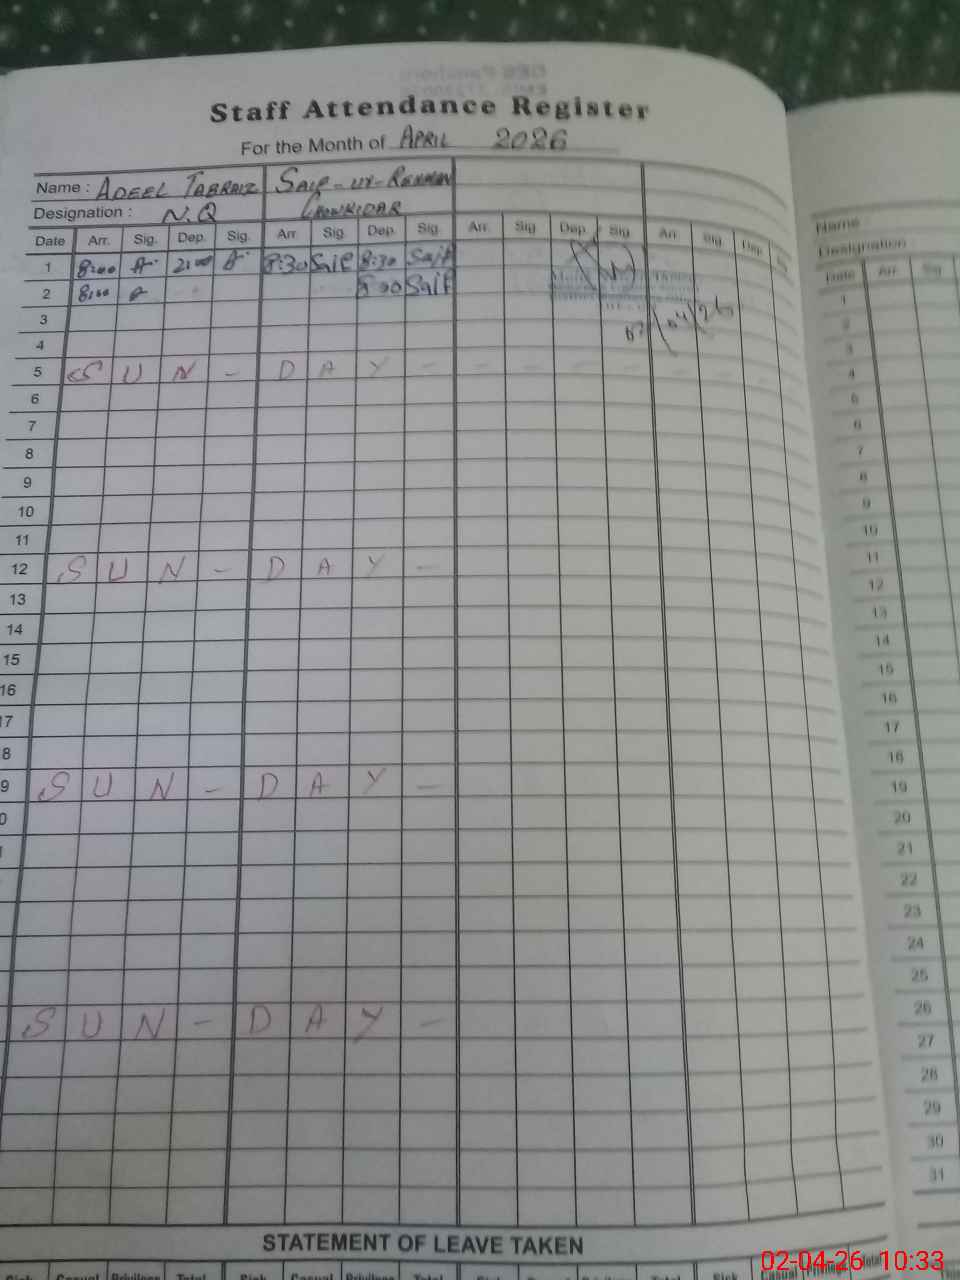 Staff Attendance Register
For the Month of APRIL 2026
Name : ADEEL TABRAIZ SAIF-UR-REHMAN
Designation : N.Q CHOWKIDAR
Date Arr. Sig. Dep. Sig. Arr. Sig. Dep. Sig. Arr. Sig Dep. Sig Arr. Sig. Dep. Sig.
1 8:00 A 2:00 A 8:30 Saif 8:30 Saif
2 8:00 A 8:00 Saif
3
4
5 S U N - D A Y - - - - - -
6
7
8
9
10
11
12 S U N - D A Y -
13
14
15
16
17
8
9 S U N - D A Y -
0
S U N - D A Y -
STATEMENT OF LEAVE TAKEN
Sick Casual Privilege Total Sick Casual Privilege Total
Name
Designation :
Date Arr Sig
1
2
3
4
5
6
7
8
9
10
11
12
13
14
15
16
17
18
19
20
21
22
23
24
25
26
27
28
29
30
31
02-04-26 10:33